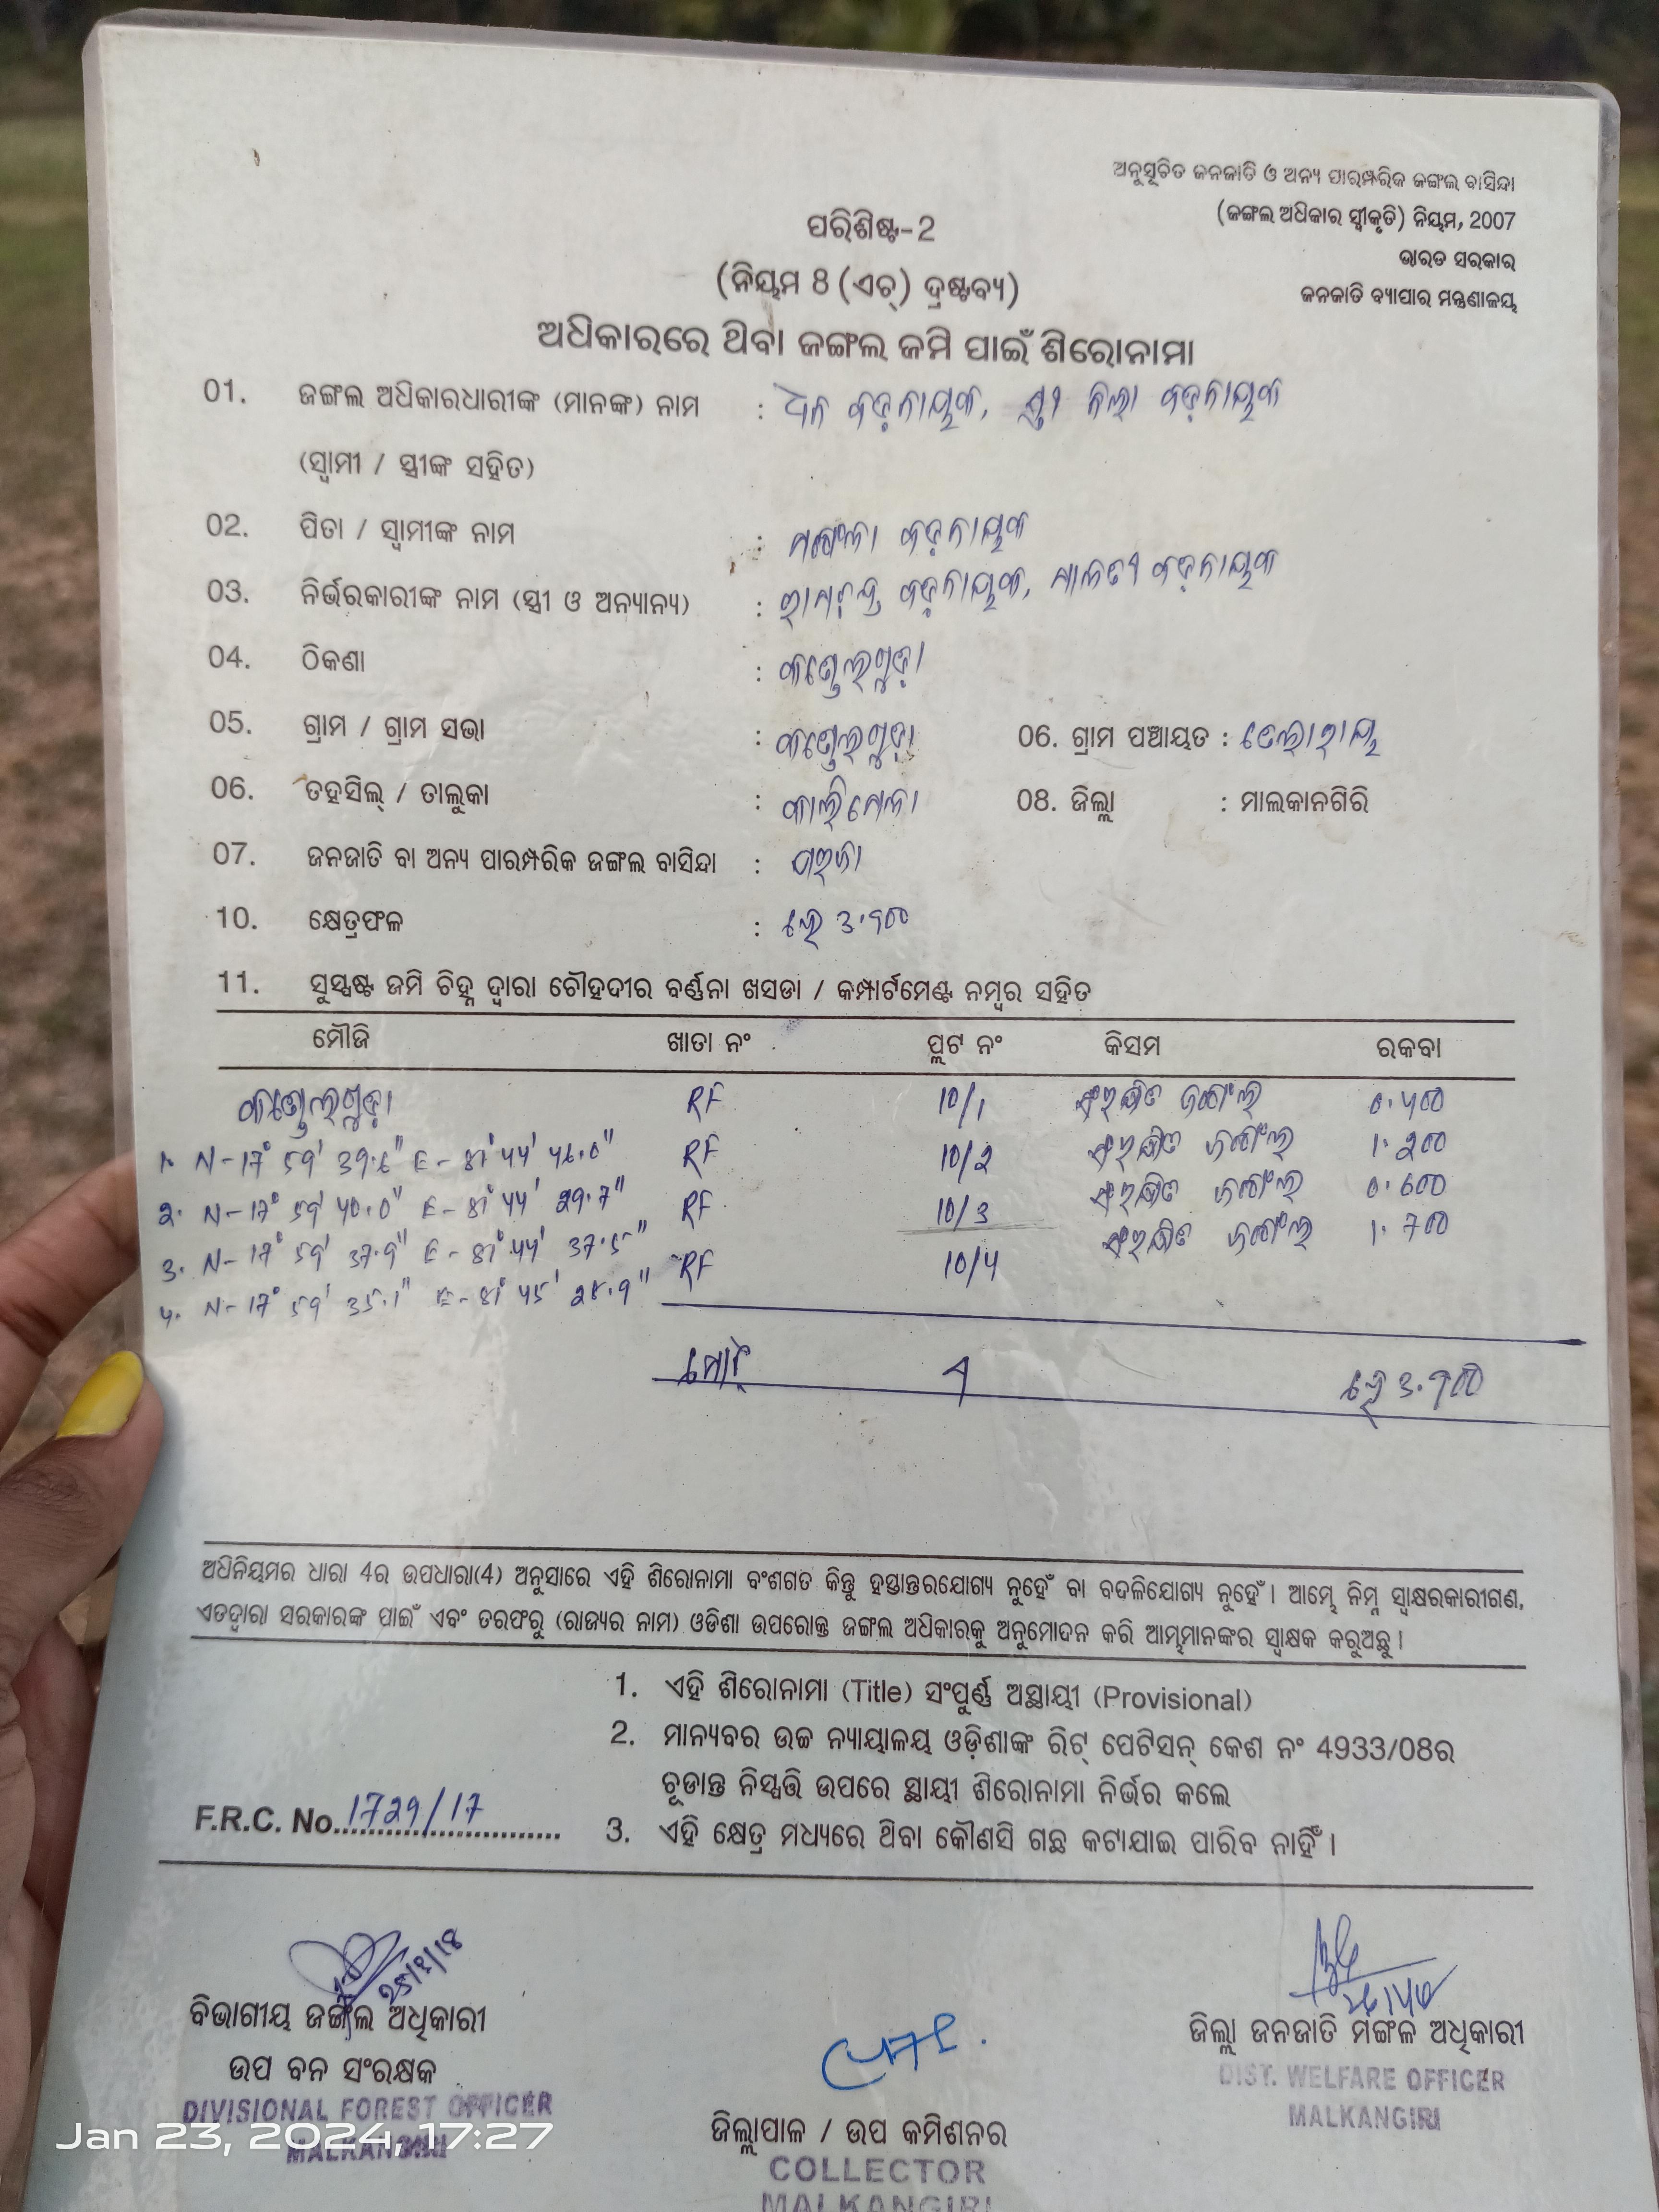 ଅନୁସୂଚିତ ଜନଜାତି ଓ ଅନ୍ୟ ପାରମ୍ପରିକ ଜଙ୍ଗଲ ବାସିନ୍ଦା
(ଜଙ୍ଗଲ ଅଧିକାର ସ୍ୱୀକୃତି) ନିୟମ, 2007
ଭାରତ ସରକାର
ଜନଜାତି ବ୍ୟାପାର ମନ୍ତ୍ରଣାଳୟ
ପରିଶିଷ୍ଟ-2
(ନିୟମ 8 (ଏଚ୍) ଦ୍ରଷ୍ଟବ୍ୟ)
ଅଧିକାରରେ ଥିବା ଜଙ୍ଗଲ ଜମି ପାଇଁ ଶିରୋନାମା
01. ଜଙ୍ଗଲ ଅଧିକାରଧାରୀଙ୍କ (ମାନଙ୍କ) ନାମ :
(ସ୍ୱାମୀ / ସ୍ତ୍ରୀଙ୍କ ସହିତ)
02. ପିତା / ସ୍ୱାମୀଙ୍କ ନାମ :
03. ନିର୍ଭରକାରୀଙ୍କ ନାମ (ସ୍ତ୍ରୀ ଓ ଅନ୍ୟାନ୍ୟ) :
04. ଠିକଣା :
05. ଗ୍ରାମ / ଗ୍ରାମ ସଭା : 06. ଗ୍ରାମ ପଞ୍ଚାୟତ :
06. ତହସିଲ୍ / ତାଲୁକା : କାଲିମେଳା 08. ଜିଲ୍ଲା : ମାଲକାନଗିରି
07. ଜନଜାତି ବା ଅନ୍ୟ ପାରମ୍ପରିକ ଜଙ୍ଗଲ ବାସିନ୍ଦା :
10. କ୍ଷେତ୍ରଫଳ : 3.900
11. ସୁସ୍ପଷ୍ଟ ଜମି ଚିହ୍ନ ଦ୍ୱାରା ଚୌହଦୀର ବର୍ଣ୍ଣନା ଖସଡା / କମ୍ପାର୍ଟମେଣ୍ଟ ନମ୍ବର ସହିତ
ମୌଜି ଖାତା ନଂ ପ୍ଲଟ ନଂ କିସମ ରକବା
RF 10/1 ସଂରକ୍ଷିତ ଜଙ୍ଗଲ 0.400
1. N-17° 59' 39.6" E-81° 44' 46.0" RF 10/2 ସଂରକ୍ଷିତ ଜଙ୍ଗଲ 1.200
2. N-17° 59' 40.0" E-81° 44' 29.7" RF 10/3 ସଂରକ୍ଷିତ ଜଙ୍ଗଲ 0.600
3. N-17° 59' 37.9" E-81° 44' 37.5" RF 10/4 ସଂରକ୍ଷିତ ଜଙ୍ଗଲ 1.700
4. N-17° 59' 35.1" E-81° 45' 28.9"
ମୋଟ୍ 4 3.900
ଅଧିନିୟମର ଧାରା 4ର ଉପଧାରା(4) ଅନୁସାରେ ଏହି ଶିରୋନାମା ବଂଶଗତ କିନ୍ତୁ ହସ୍ତାନ୍ତରଯୋଗ୍ୟ ନୁହେଁ ବା ବଦଳିଯୋଗ୍ୟ ନୁହେଁ। ଆମ୍ଭେ ନିମ୍ନ ସ୍ୱାକ୍ଷରକାରୀଗଣ,
ଏତଦ୍ୱାରା ସରକାରଙ୍କ ପାଇଁ ଏବଂ ତରଫରୁ (ରାଜ୍ୟର ନାମ) ଓଡିଶା ଉପରୋକ୍ତ ଜଙ୍ଗଲ ଅଧିକାରକୁ ଅନୁମୋଦନ କରି ଆମ୍ଭମାନଙ୍କର ସ୍ୱାକ୍ଷକ କରୁଅଛୁ।
1. ଏହି ଶିରୋନାମା (Title) ସଂପୁର୍ଣ୍ଣ ଅସ୍ଥାୟୀ (Provisional)
2. ମାନ୍ୟବର ଉଚ୍ଚ ନ୍ୟାୟାଳୟ ଓଡ଼ିଶାଙ୍କ ରିଟ୍ ପେଟିସନ୍ କେଶ ନଂ 4933/08ର
ଚୂଡାନ୍ତ ନିସ୍ପତ୍ତି ଉପରେ ସ୍ଥାୟୀ ଶିରୋନାମା ନିର୍ଭର କଲେ
F.R.C. No. 1729/17
3. ଏହି କ୍ଷେତ୍ର ମଧ୍ୟରେ ଥିବା କୌଣସି ଗଛ କଟାଯାଇ ପାରିବ ନାହିଁ।
ବିଭାଗୀୟ ଜଙ୍ଗଲ ଅଧିକାରୀ
ଉପ ବନ ସଂରକ୍ଷକ
DIVISIONAL FOREST OFFICER
MALKANGIRI
ଜିଲ୍ଲାପାଳ / ଉପ କମିଶନର
COLLECTOR
MALKANGIRI
ଜିଲ୍ଲା ଜନଜାତି ମଙ୍ଗଳ ଅଧିକାରୀ
DIST. WELFARE OFFICER
MALKANGIRI
Jan 23, 2024, 17:27